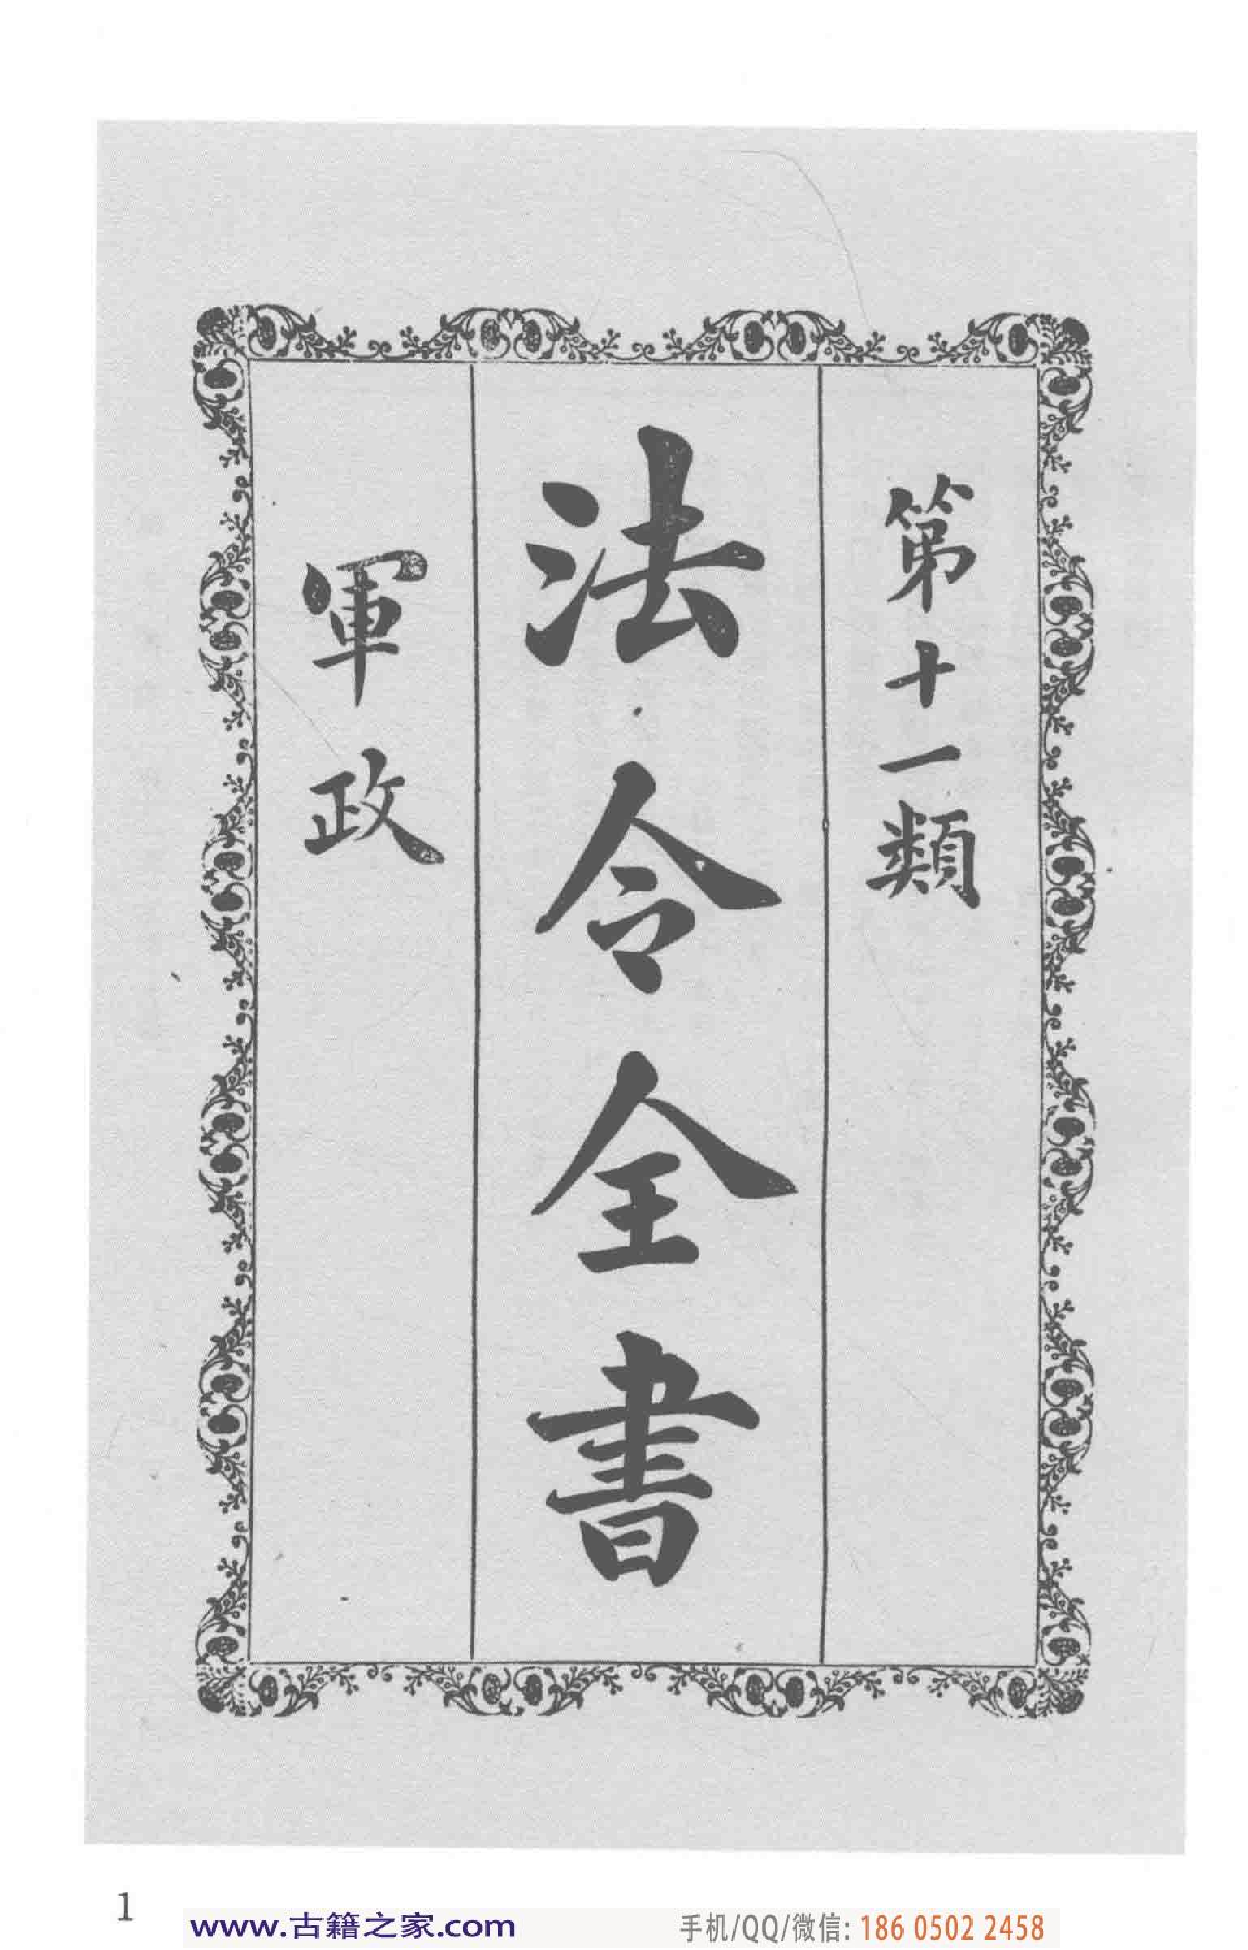 第十一類
法令全書
軍政
1
www.古籍之家.com
手机/QQ/微信: 186 0502 2458